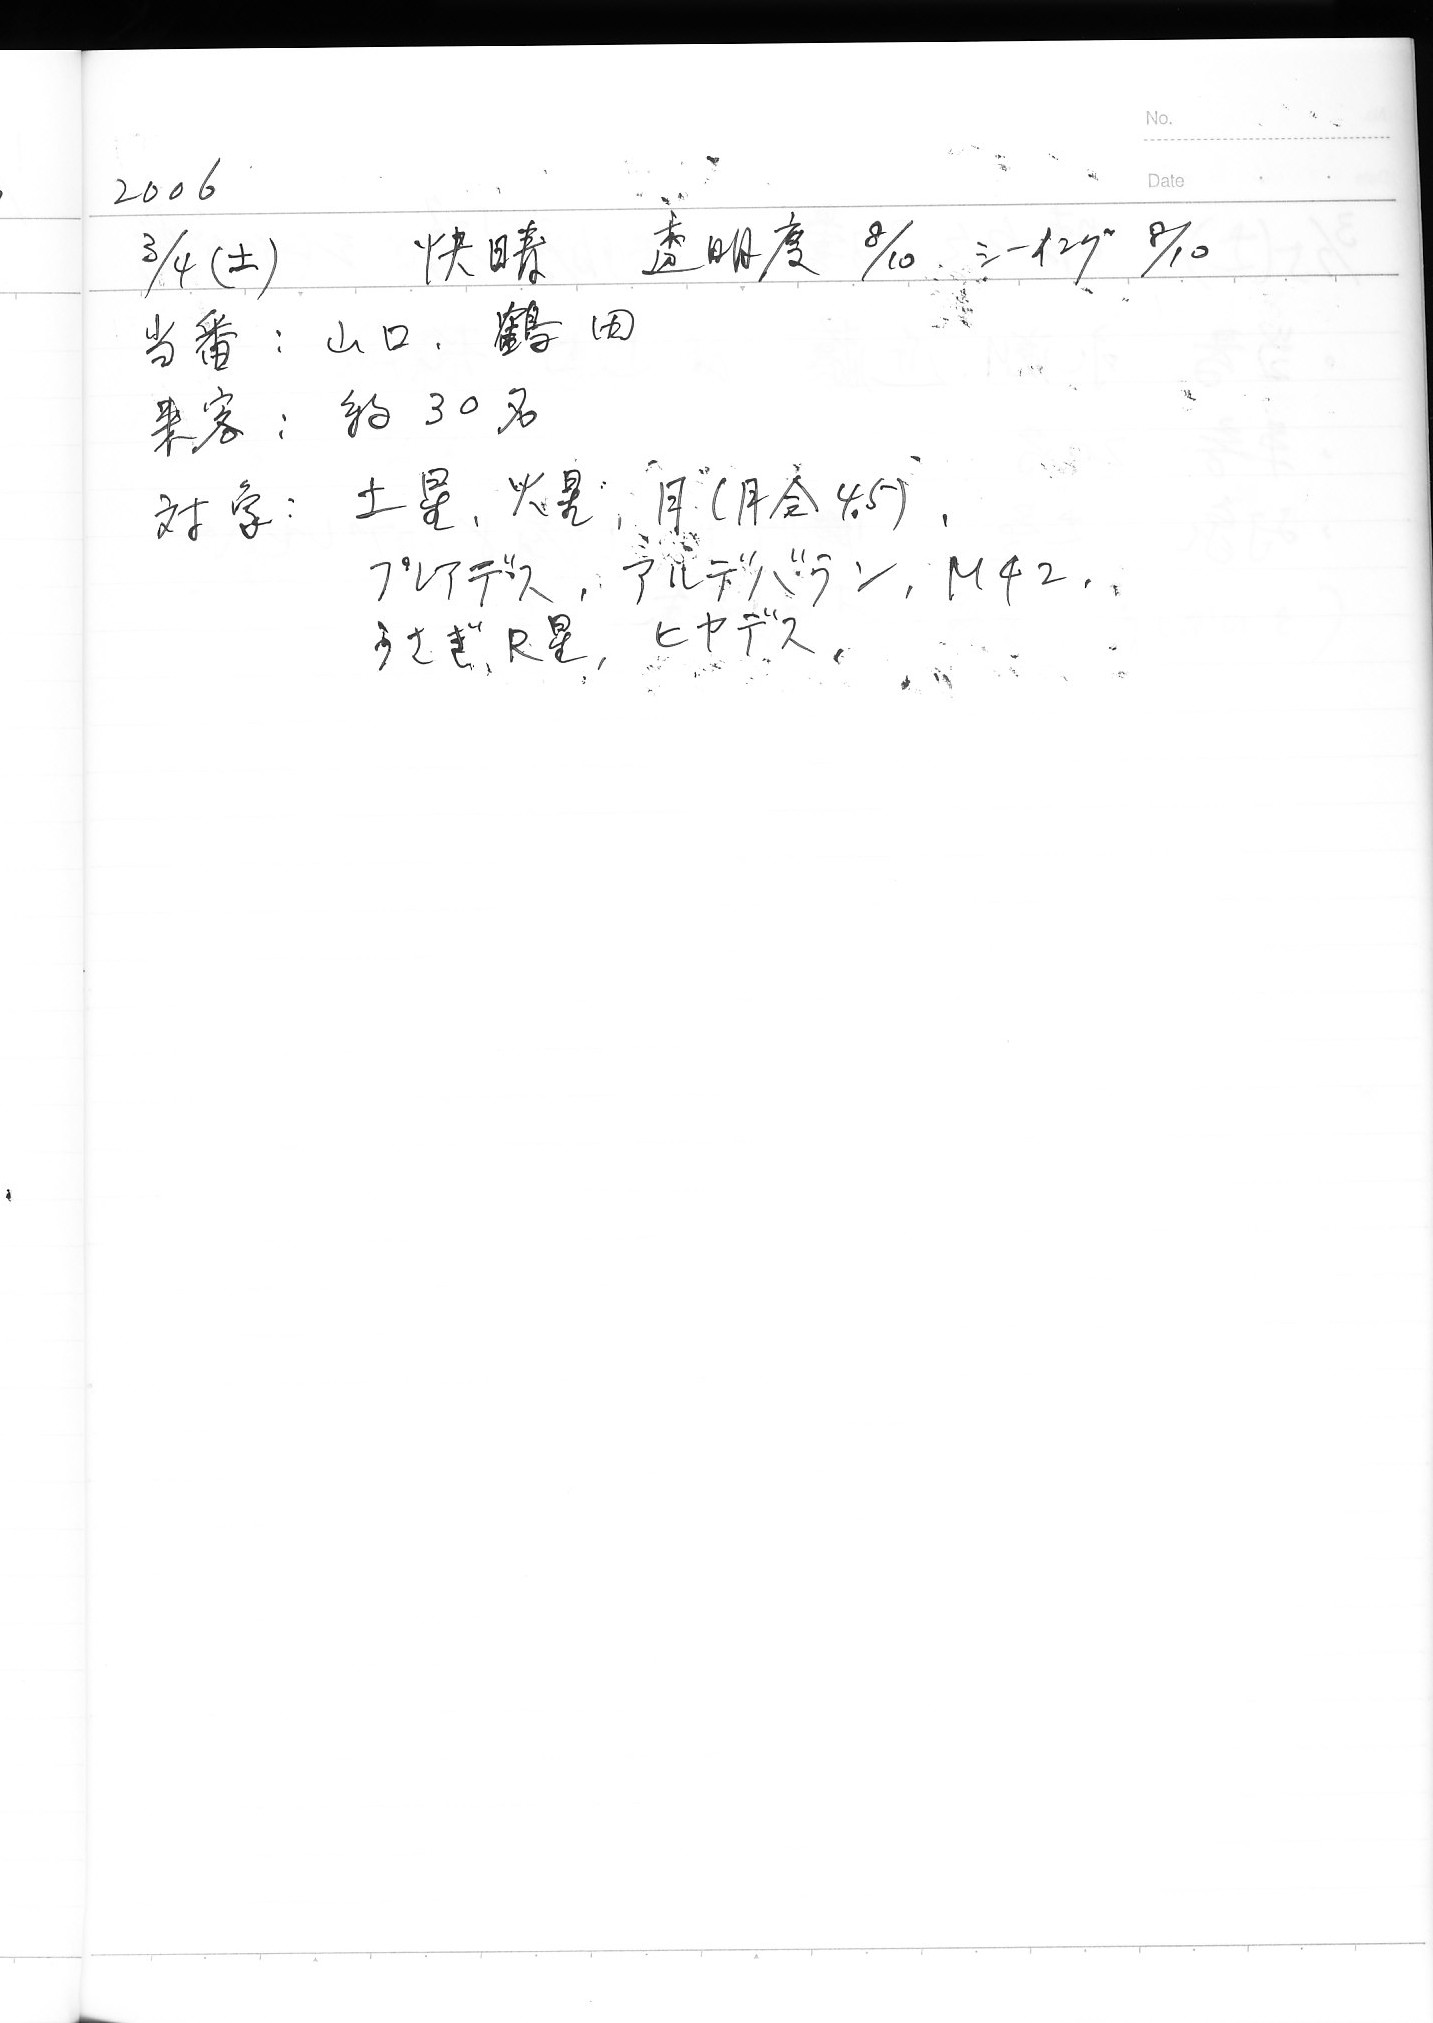 No.
Date
2006
3/4(土) 快晴 透明度 8/10. シーイング 8/10
当番: 山口. 鶴田
来客: 約30名
対象: 土星, 火星, 月(月令4.5),
プレアデス, アルデバラン, M42.
うさぎR星, ヒヤデス,